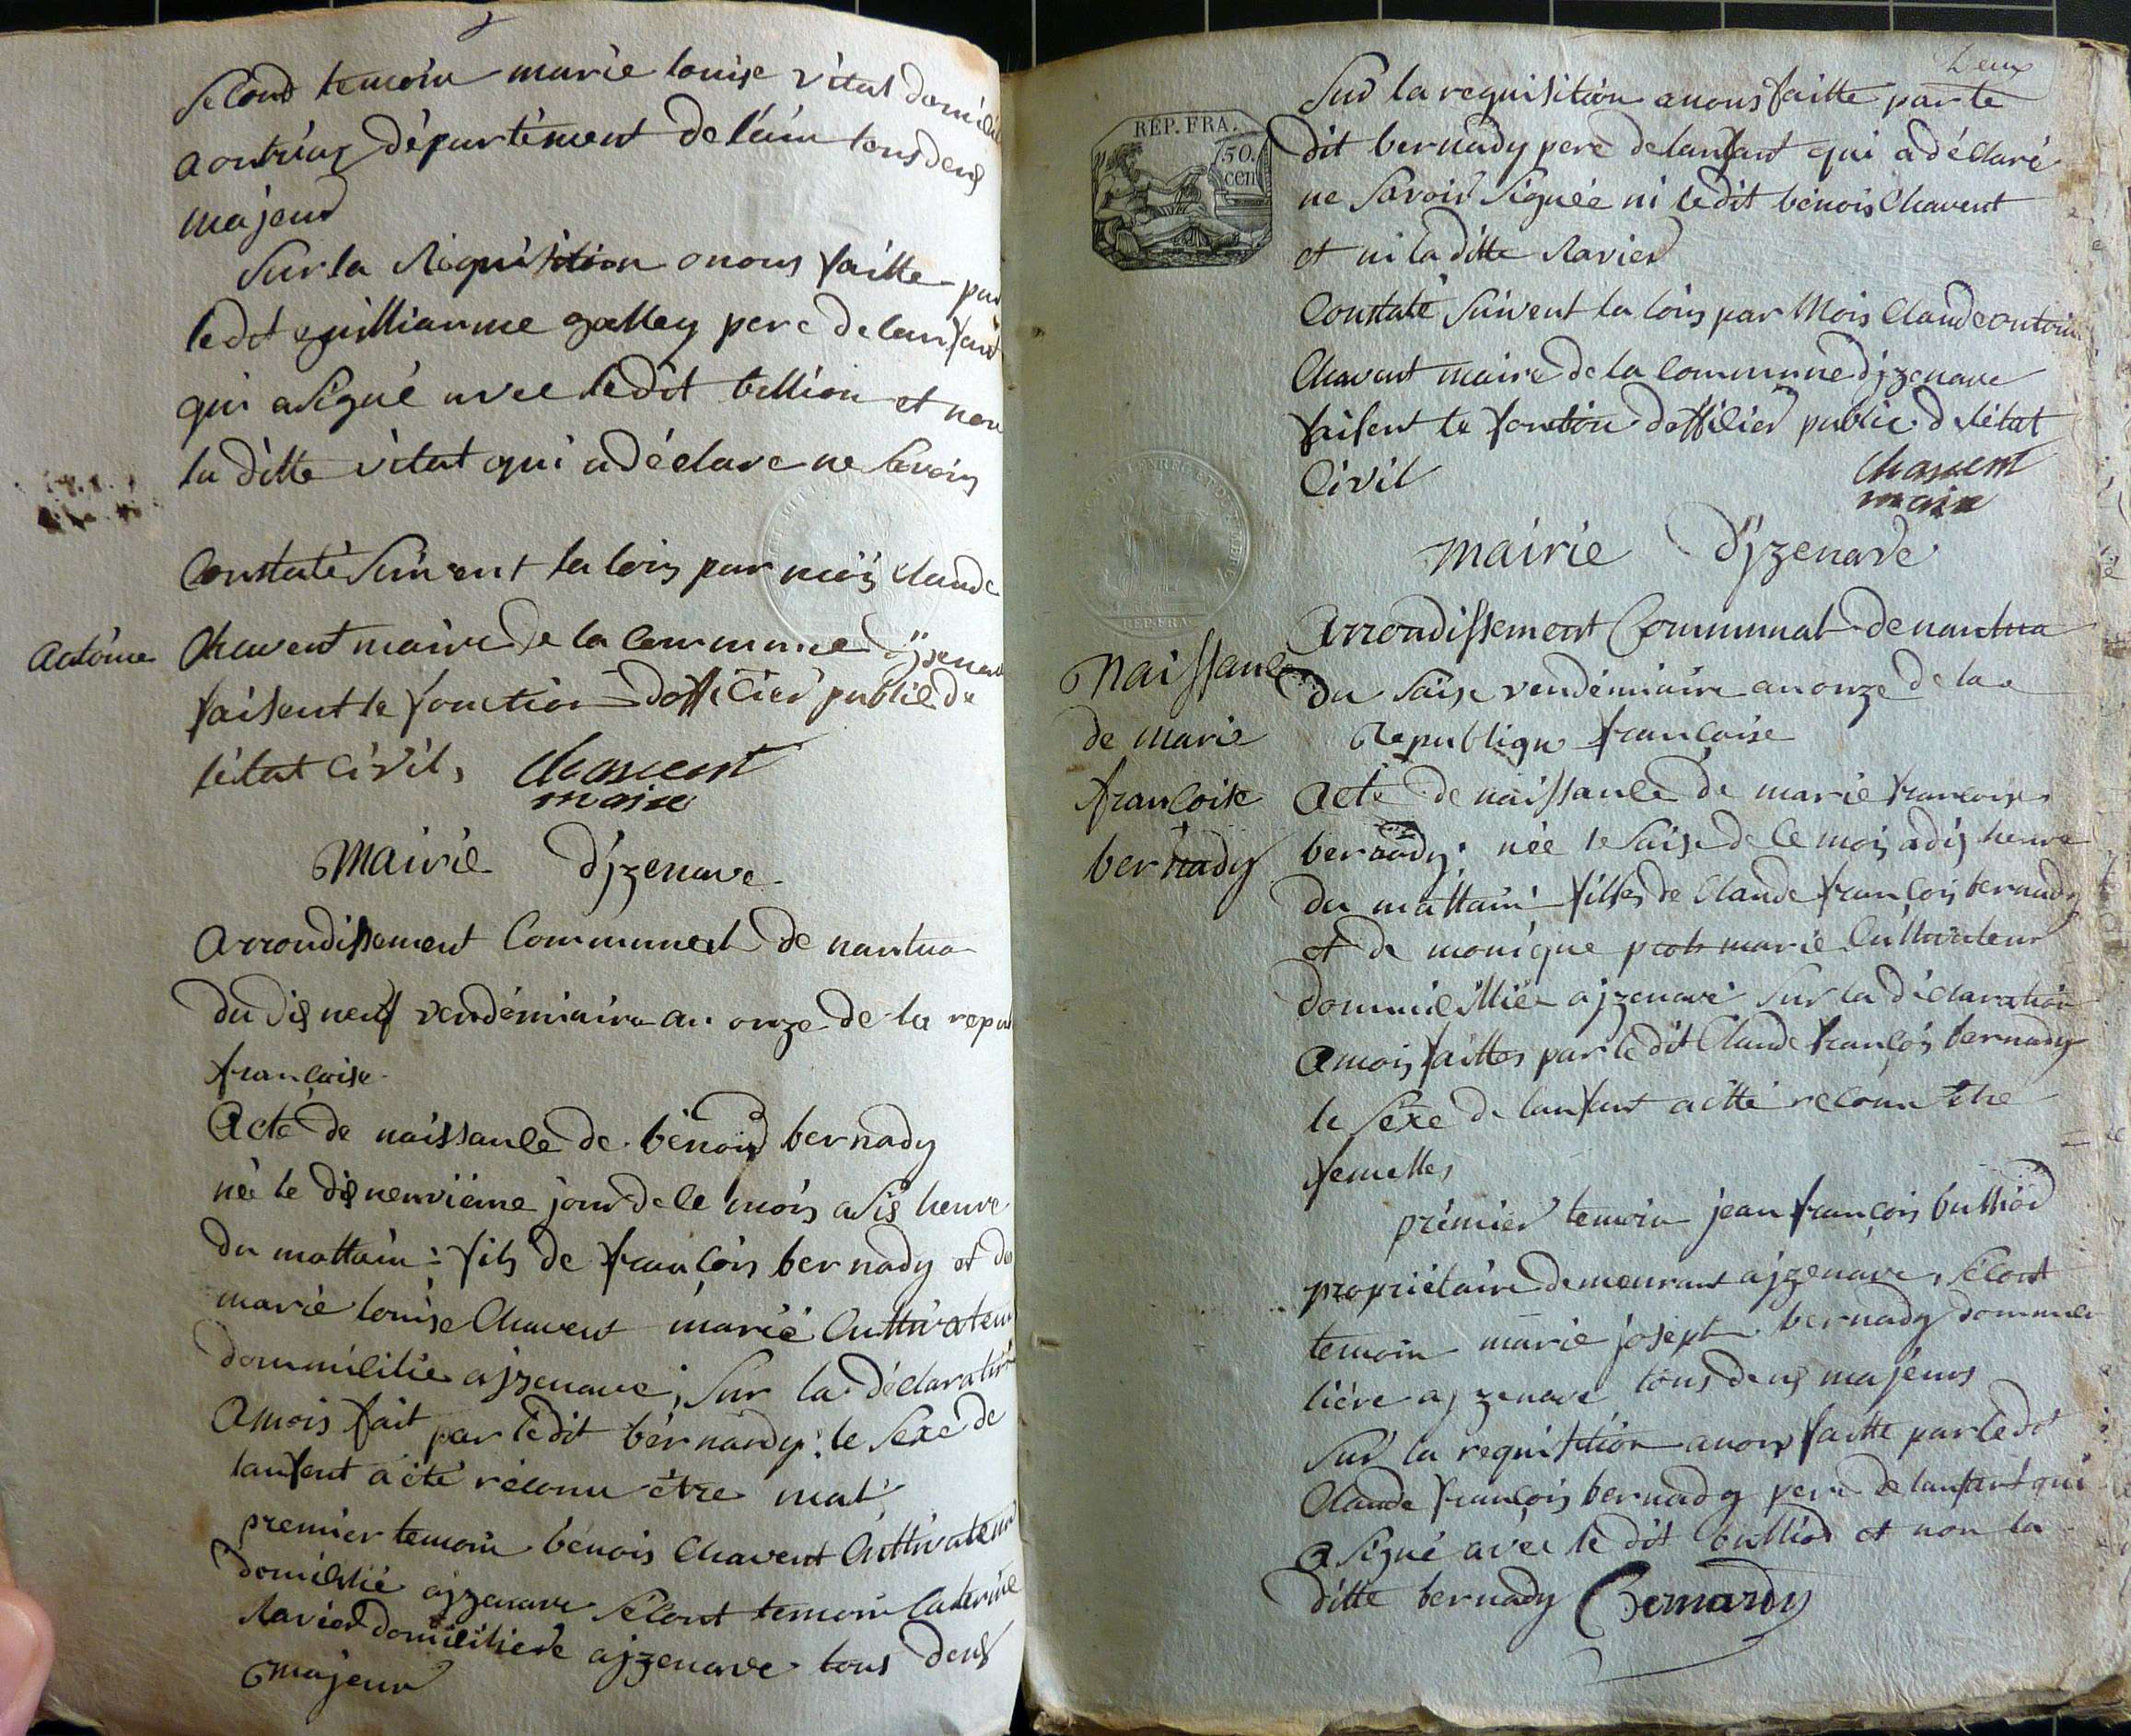 second temoin marie louise vital domicil
a département de l'ain tous deux
majeur
sur la réquisition a nous faitte par
ledit guilliaume galley pere de lanfant
qui a signé avec ledit billion et non
la ditte vital qui a déclare ne savoir
Constaté suivent la lois par mois claude
antoine
Chavent maire de la commune d'jzenave
faisent le fonction dofficier public de
l'état civil,
chavent
maire
Mairie d'jzenave
arrondissement Communal de nantua
du dis neuf vendémiaire an onze de la repu
françoise
Acte de naissance de benois bernady
née le dis neuviéme jour de ce mois a sis heure
du mattain : fils de françois bernady et de
marie louise Chavent marié Cultivateur
dommicilie a jzenave, sur la déclaration
a mois fait par ledit bernardy : le sexe de
lanfent a été reconu être mal
premier temoin benois Chavent Cultivateur
domicilié a jzenave secont temoin Caterine
Ravier domiciliere a jzenave tous deux
majeur
Deux
REP. FRA.
50.
cen
Sur la requisition a nous faitte par le
dit bernady pere de lanfant qui a déclaré
ne savoir signée ni ledit benois Chavent
et ni la ditte Ravier
Constaté suivent la lois par Mois Claude antoine
Chavent maire de la Commune d'jzenave
faisent le fontion dofficier public de létat
Civil
chavent
maire
REP. FRA
mairie d'jzenave
arrondissement Communal de nantua
du saise vendémiaire an onze de la
Republique françoise
Naissance
de marie
francoise
bernady
Acte de naissance de marie francoise
bernady. née le saise de ce mois a dis heure
du mattain filles de Claude françois bernady
et de monique marie Cultivateur
dommicillié a jzenave sur la déclaration
a mois faittes par ledit Claude françois bernady
le sexe de lanfant a etté reconu etre
femelles
prémier temoin jean françois bulliod
propriétaire demeurant a jzenave, secont
temoin marie joseph bernady dommici
liére a jzenave tous deux majeurs
Sur la requisition a nous faitte par ledit
Claude françois bernady pere de lanfant qui
a signé avec le dit bulliod et non la
ditte bernady Bernardy